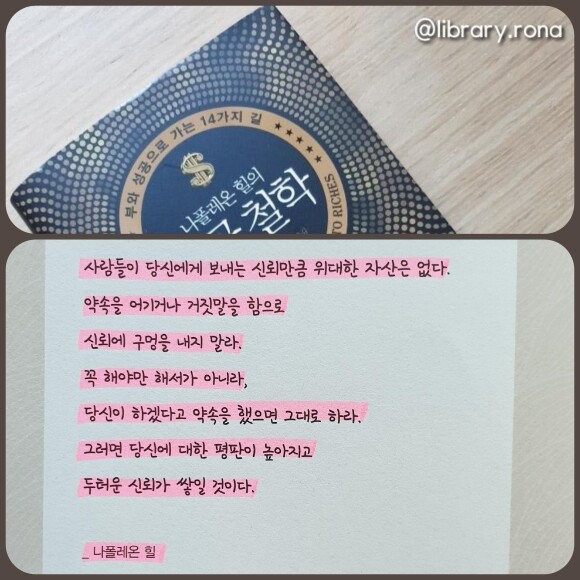 @library.rona
부와 성공으로 가는 14가지 길
$
나폴레온 힐의
철학
TO RICHES
사람들이 당신에게 보내는 신뢰만큼 위대한 자산은 없다.
약속을 어기거나 거짓말을 함으로
신뢰에 구멍을 내지 말라.
꼭 해야만 해서가 아니라,
당신이 하겠다고 약속을 했으면 그대로 하라.
그러면 당신에 대한 평판이 높아지고
두터운 신뢰가 쌓일 것이다.
_ 나폴레온 힐